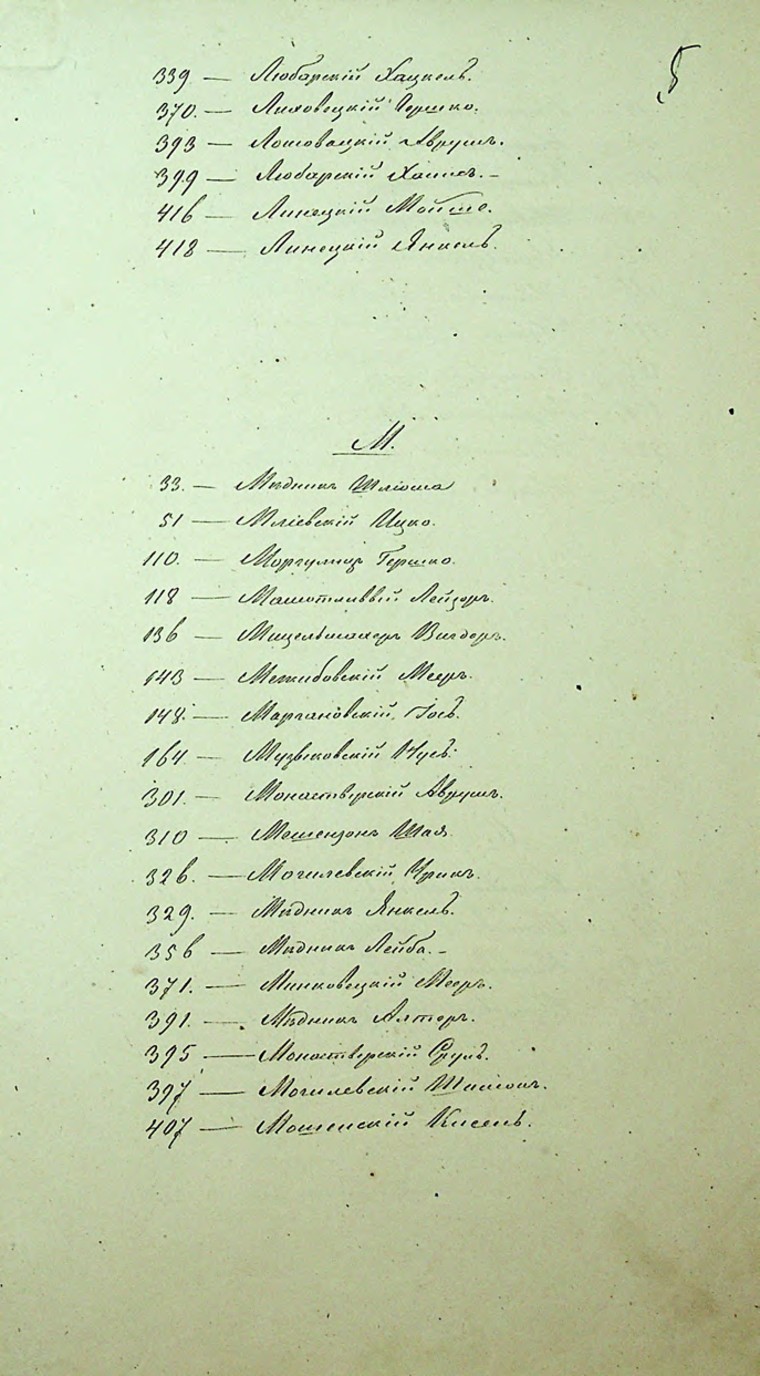 5
339 — Любарскій Хацкель.
370. — Лиховецкій Гершко.
393 — Лошовацкій Аврумъ.
399 — Любарскій Хаимъ. –
416 — Линецкій Мойше.
418 — Линецкій Янкель.
М.
33. — Мѣдникъ Шліома
51 — Мліевскій Ицко.
110. — Моргулицъ Гершко.
118 — Лейзоръ.
136 — Мицельмахеръ Вигдоръ.
143 — Межибовскій Мееръ.
148. — Маргановскій Іосъ.
164 — Нусъ.
301. — Монастырскій Аврумъ.
310 — Мошензонъ Шая.
326. — Могилевскій Урикъ.
329. — Мѣдникъ Янкель.
356 — Мѣдникъ Лейба. –
371. — Минковецкій Мееръ.
391. — Мѣдникъ Алтеръ.
395 — Монастырскій Сруль.
397 — Могилевскій Шимонъ.
407 — Мошенскій Кисель.